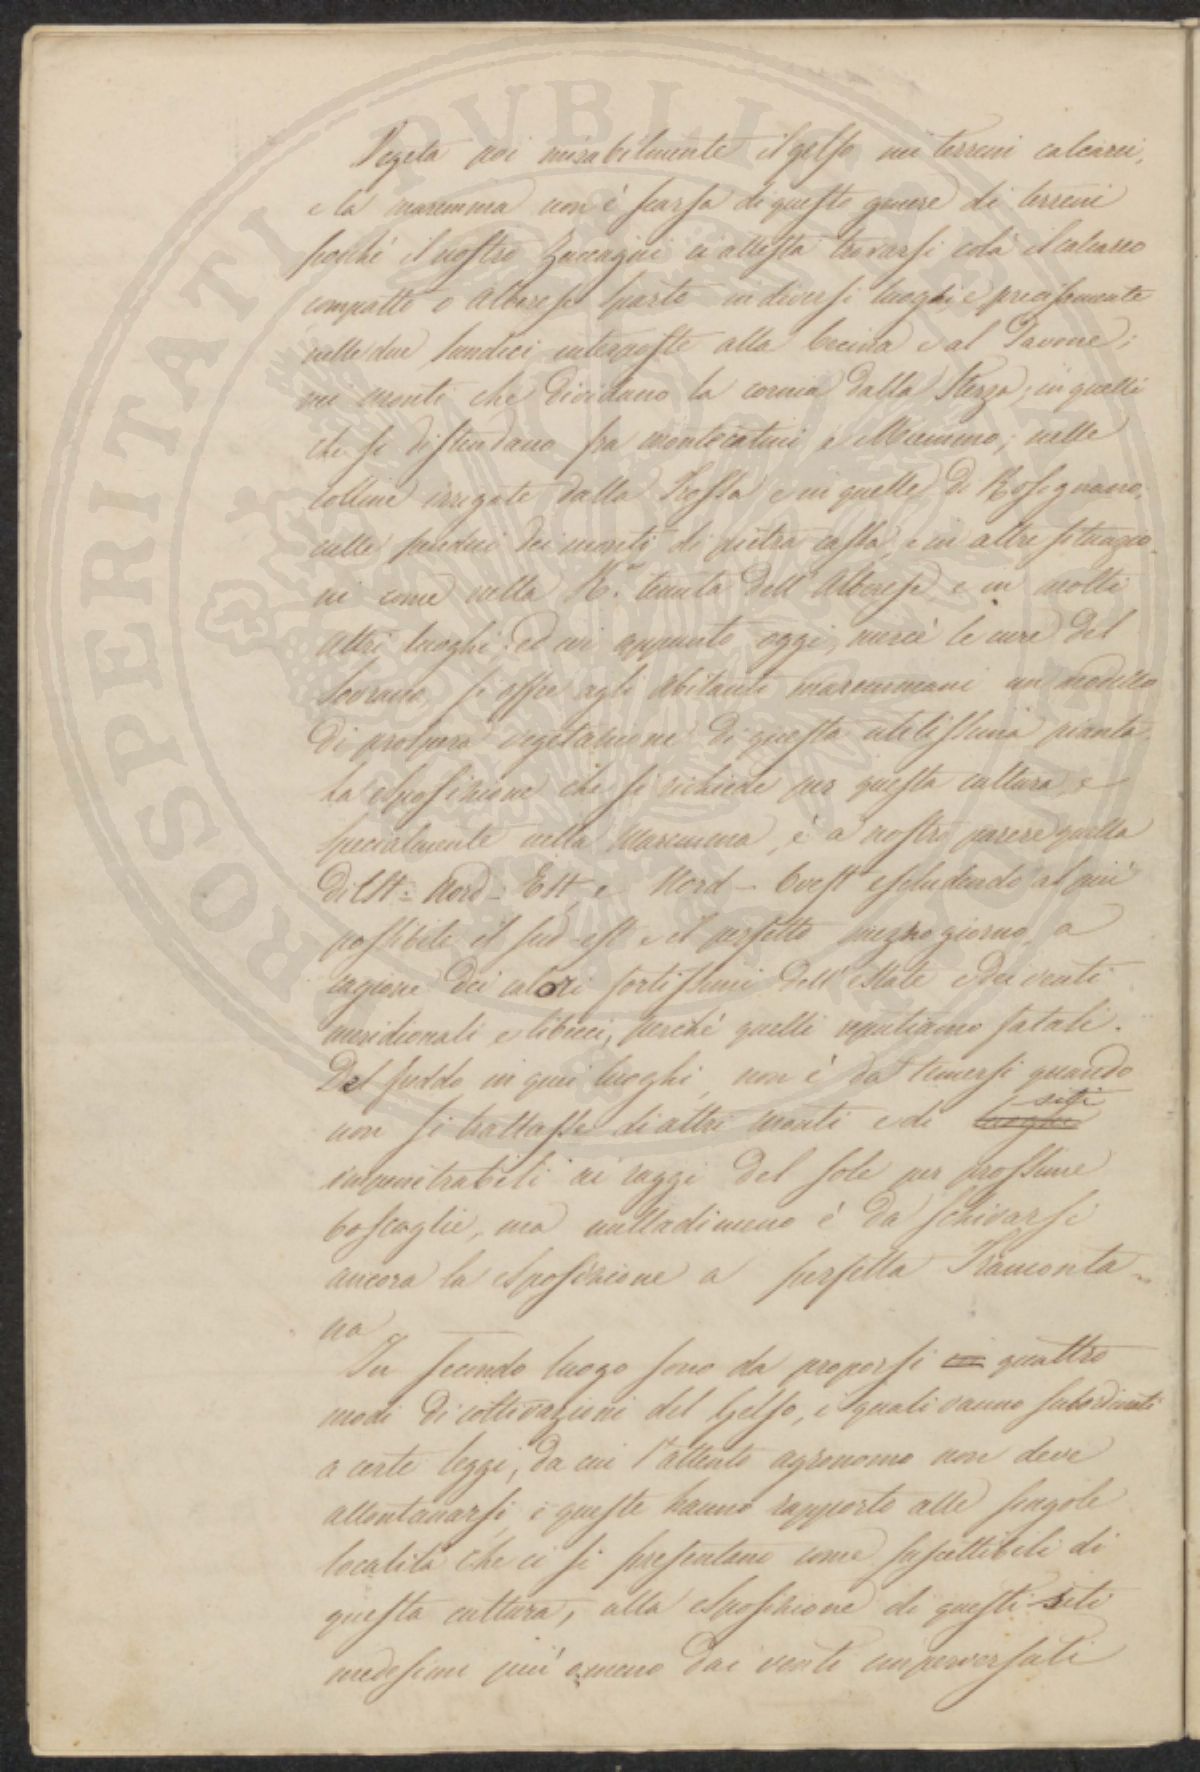 Vegeta poi mirabilmente il gelso nei terreni calcarei,
e la maremma non è scarsa di questo genere di terreni
poiché il nostro Zuccagni ci attesta trovarsi colà il calcareo
compatto o Alberese sparso in diversi luoghi, e precisamente
nelle due pendici interposte alla Cecina e al Pavone;
nei monti che dividano la cornia dalla Sterza; in quelli
che si distendano fra montecatini e Miemmo; nelle
colline irrigate dalla Fossa e in quelle di Rosignano,
sulle pendici dei monti di pietra cassa, e in altre situazio-
ni come nella R.ª tenuta dell' Alberese e in molti
altri luoghi: ed ivi appunto oggi, mercè le cure del
Sovrano, si offre agli abitanti maremmani un modello
di prospera vegetazione di questa utilissima pianta.
La esposizione che si richiede per questa cultura, e
specialmente nella Maremma, è a nostro parere quella
di Est- Nord-Est, e Nord-Ovest escludendo al più
possibile il sud-est e il perfetto mezzogiorno, a
cagione dei calori fortissimi dell' estate e dei venti
meridionali e libecci, perché quelli reputiamo fatali.
Del freddo in quei luoghi, non è da temersi quando
non si trattasse di altri monti e di luoghi siti
impenetrabili ai raggi del sole per prossime
boscaglie, ma nulladimeno è da schivarsi
ancora la esposizione a perfetta Tramonta-
na
In secondo luogo sono da proporsi in quattro
modi di coltivazioni del Gelso, i quali vanno subordinati
a certe leggi, da cui l'attento agronomo non deve
allontanarsi, e queste hanno rapporto alle singole
località che ci si presentano come suscettibili di
questa cultura, alla esposizione di questi siti
medesimi più o meno dai venti imperversati
PROSPERITATI PUBLICAE